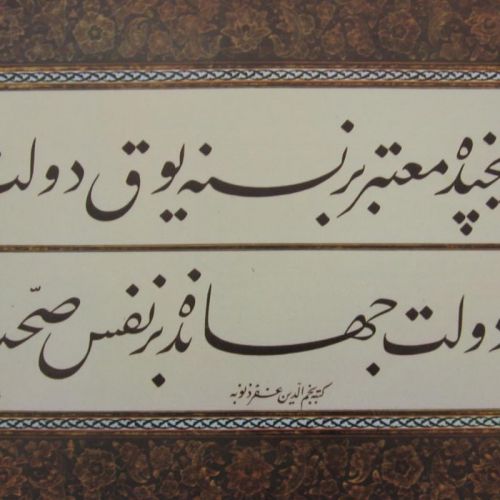 یچنده معتبر بر نسنه یوق دولت
دولت جهانده بر نفس صحّت
کتبه نجم الدّین غفر ذنوبه